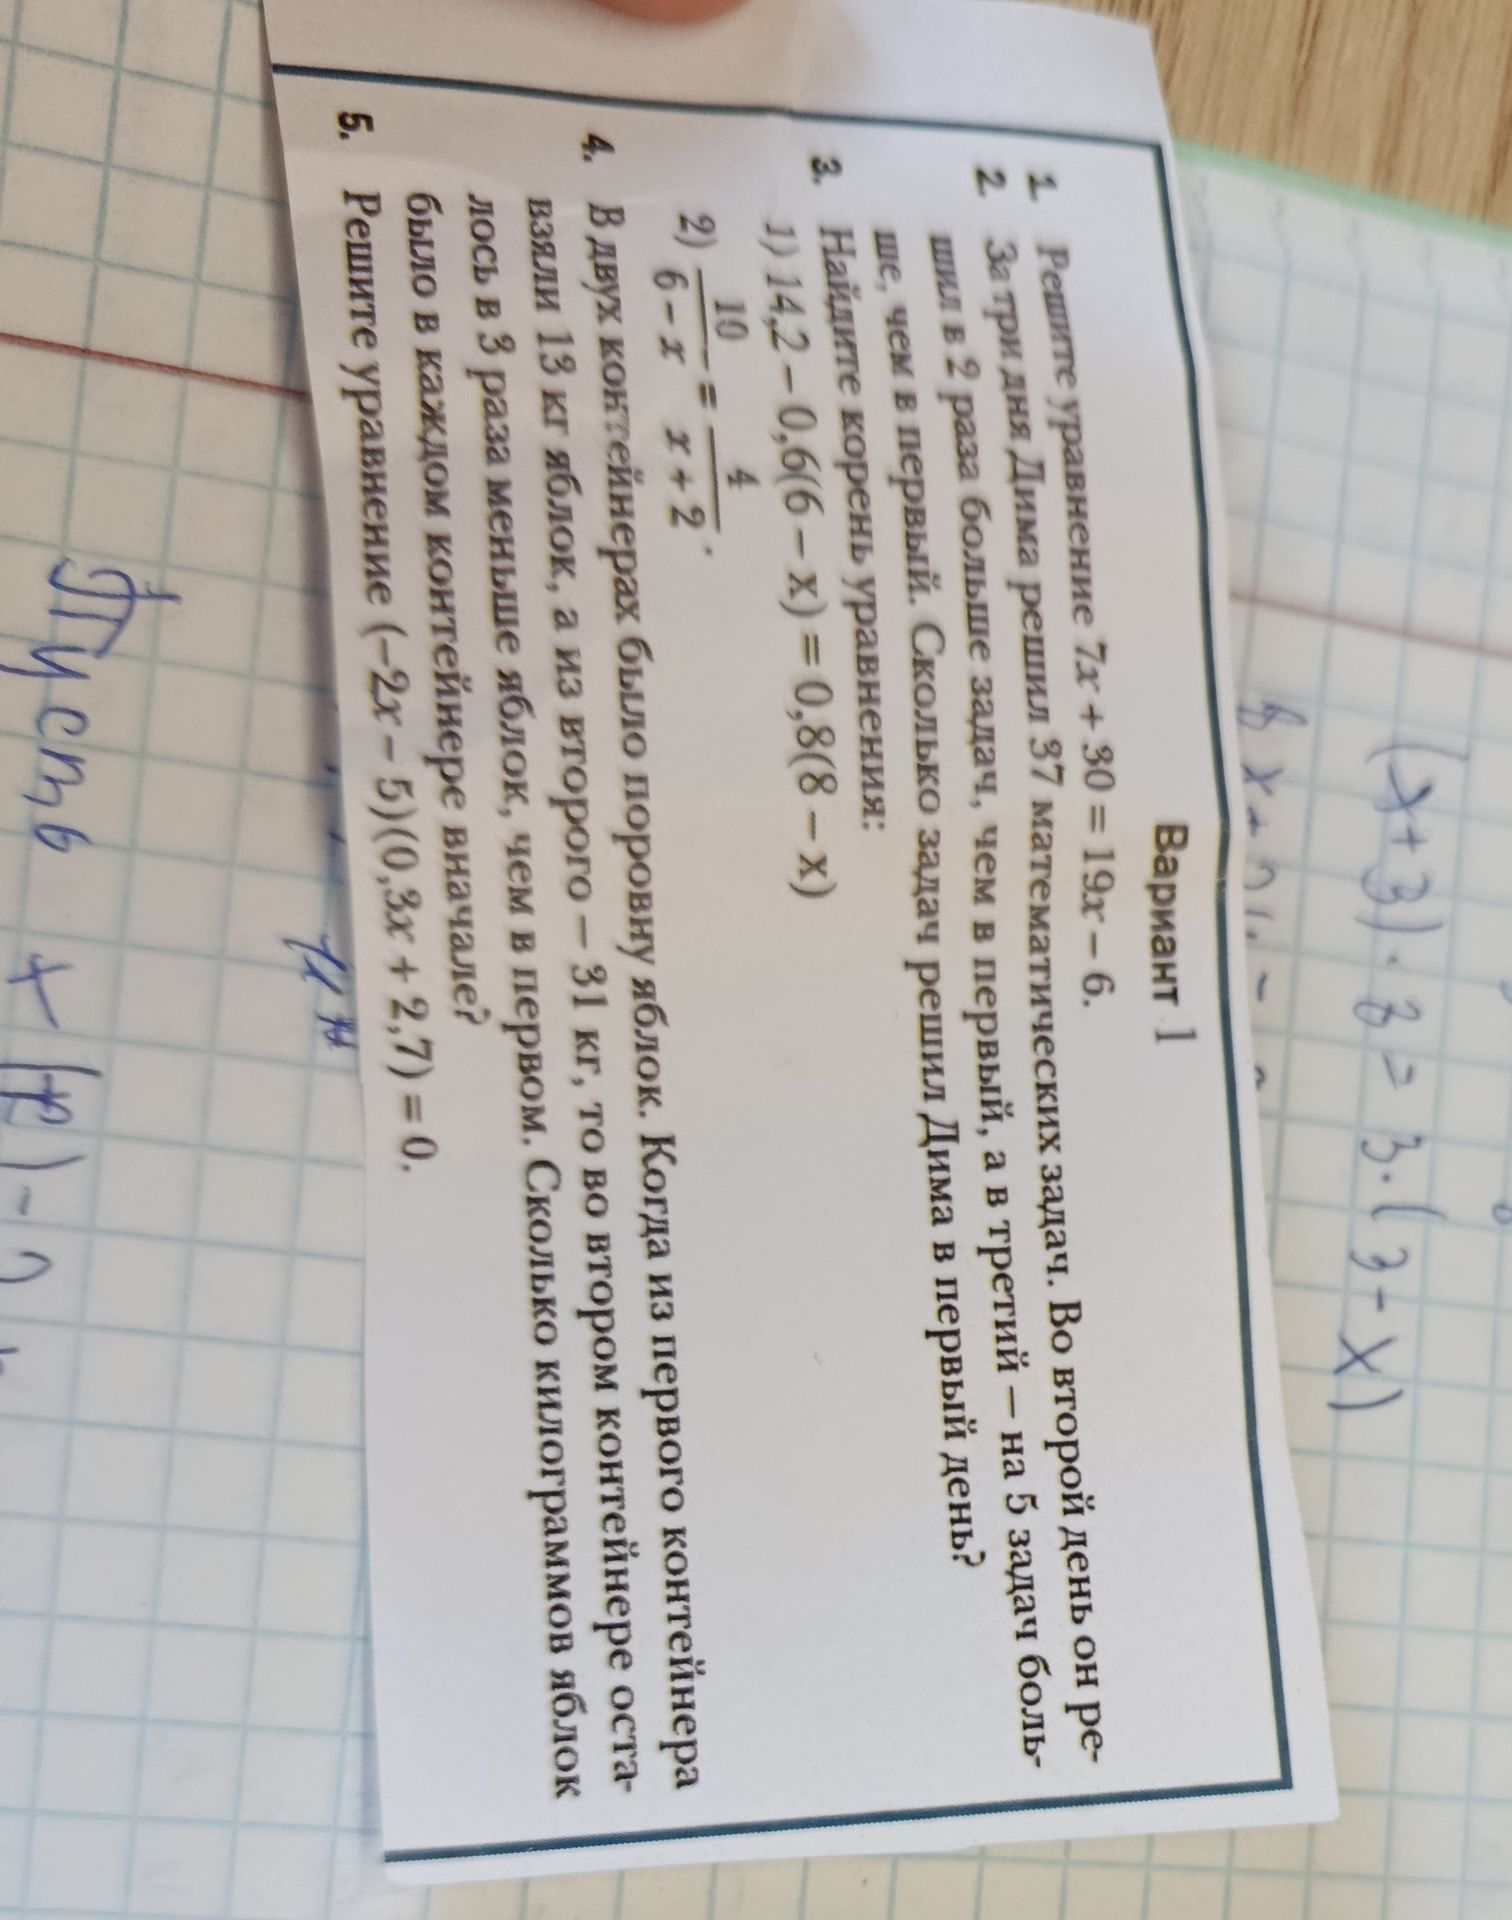 (x+3)·8=3·(3-x)
Вариант 1
1. Решите уравнение 7x + 30 = 19x – 6.
2. За три дня Дима решил 37 математических задач. Во второй день он ре-
шил в 2 раза больше задач, чем в первый, а в третий – на 5 задач боль-
ше, чем в первый. Сколько задач решил Дима в первый день?
3. Найдите корень уравнения:
1) 14,2 – 0,6(6 – x) = 0,8(8 – x)
2) 10/(6 – x) = 4/(x + 2).
4. В двух контейнерах было поровну яблок. Когда из первого контейнера
взяли 13 кг яблок, а из второго – 31 кг, то во втором контейнере оста-
лось в 3 раза меньше яблок, чем в первом. Сколько килограммов яблок
было в каждом контейнере вначале?
5. Решите уравнение (–2x – 5)(0,3x + 2,7) = 0.
Пусть